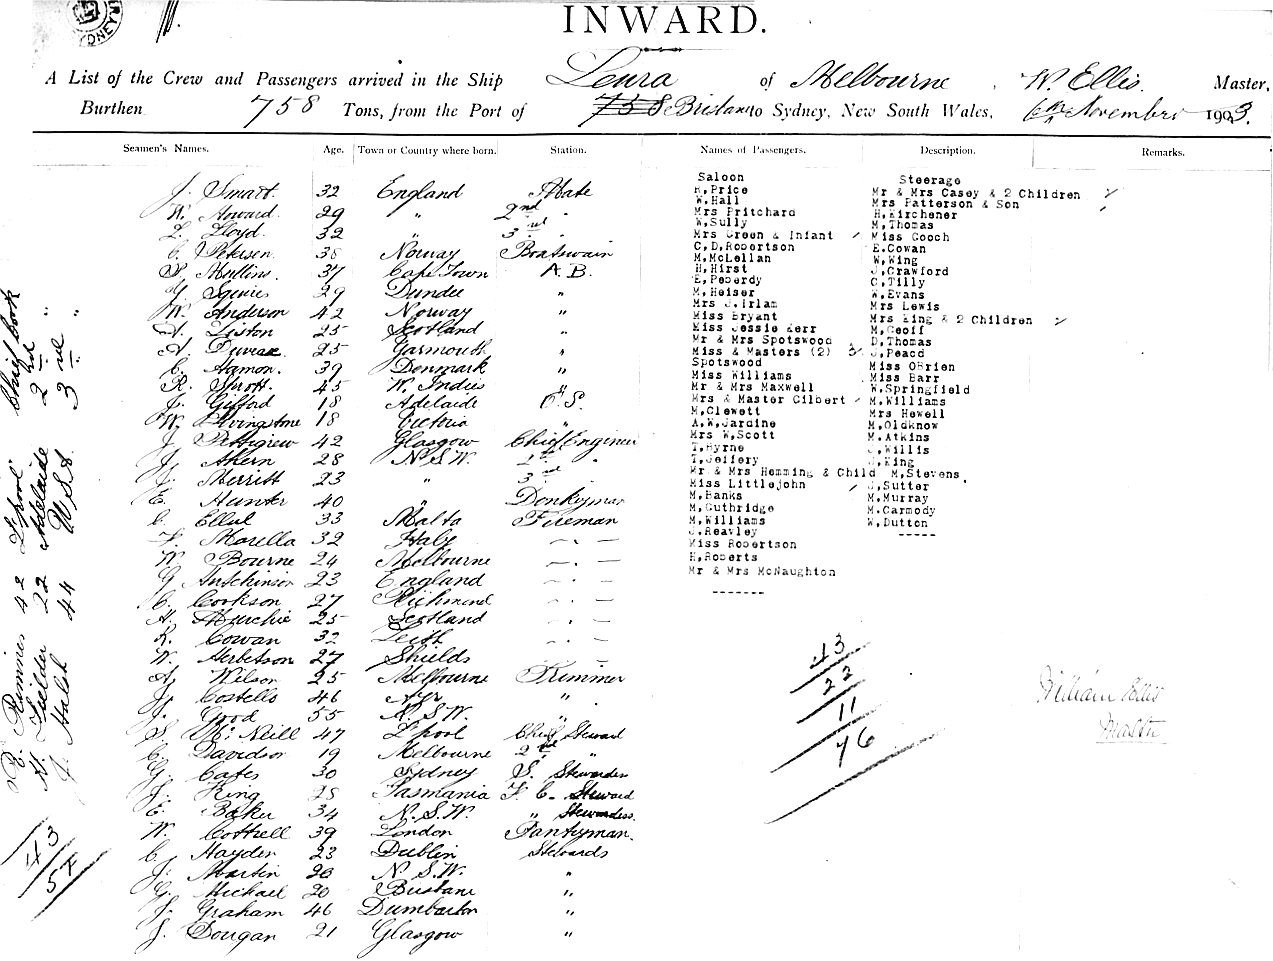 INWARD.
A List of the Crew and Passengers arrived in the Ship Leura of Melbourne, W. Ellis. Master,
Burthen 758 Tons, from the Port of 758 Brisbane to Sydney, New South Wales, 6th November 1903.
Seamen's Names. Age. Town or Country where born. Station. Names of Passengers. Description. Remarks.
J. Smart 32 England Mate
W. Howard 29 " 2nd "
L. Lloyd 32 " 3rd "
C. Petersen 38 Norway Boatswain
P. Mullins 37 Cape Town A.B.
G. Squires 29 Dundee "
W. Anderson 42 Norway "
A. Liston 25 Scotland "
A. 25 Garmouth "
C. Hamon 39 Denmark "
R. 45 W. Indies "
J. Gifford 18 Adelaide O.S.
W. Livingstone 18 Victoria "
J. Pettigrew 42 Glasgow Chief Engineer
J. Ahern 28 N.S.W. 2nd "
J. Merritt 23 " 3rd "
E. Hunter 40 " Donkeyman
C. Ellul 33 Malta Fireman
F. Morella 32 Italy – . –
W. Bourne 24 Melbourne – . –
G. Hutchinson 23 England – . –
C. Cookson 27 Richmond – . –
A. Murchie 25 Scotland – . –
R. Cowan 32 Leith – . –
W. Herbetson 27 Shields – . –
A. Wilson 25 Melbourne Trimmer
J. Costello 46 Ayr "
J. Good 55 N.S.W. "
S. McNeill 47 L'pool Chief Steward
C. Davidson 19 Melbourne 2nd "
G. Cates 30 Sydney S. Steward
J. King 28 Tasmania F. C. Steward
E. Baker 34 N.S.W. " Stewardess
W. Cottrell 39 London Pantryman
C. Hayden 23 Dublin Stewards
J. Martin 20 N.S.W. "
G. Michael 20 Brisbane "
J. Graham 46 Dumbarton "
J. Dougan 21 Glasgow "
R. Rimmer 42 L'pool Chief Cook
H. Fielder 22 Adelaide 2nd "
J. Haleh 44 USS 3rd "
43
54
Saloon
R,Price
W.Hall
Mrs Pritchard
W,Sully
Mrs Green & Infant
C,D,Robertson
M,McLellan
H,Hirst
E,Peberdy
M,Heiser
Mrs J.Irlam
Miss Bryant
Miss Jessie Kerr
Mr & Mrs Spotswood
Miss & Masters (2)
Spotswood
Miss Williams
Mr & Mrs Maxwell
Mrs & Master Gilbert
M,Clewett
A,W,Jardine
Mrs W,Scott
T,Byrne
T,Jeffery
Mr & Mrs Hemming & Child
Miss Littlejohn
M,Banks
M,Guthridge
M,Williams
J.Reavley
Miss Robertson
H,Roberts
Mr & Mrs McNaughton
-------
Steerage
Mr & Mrs Casey & 2 Children
Mrs Patterson & Son
H,Kirchener
M,Thomas
Miss Gooch
E.Cowan
W,Wing
J,Crawford
C,Tilly
W,Evans
Mrs Lewis
Mrs King & 2 Children
M,Geoff
D,Thomas
J,Peacd
Miss OBrien
Miss Barr
W.Springfield
M,Williams
Mrs Hewell
M,Oldknow
M.Atkins
J,Willis
J,King
M,Stevens.
J,Sutter
M,Murray
M,Carmody
W,Dutton
-----
43
22
11
76
William Ellis
Master